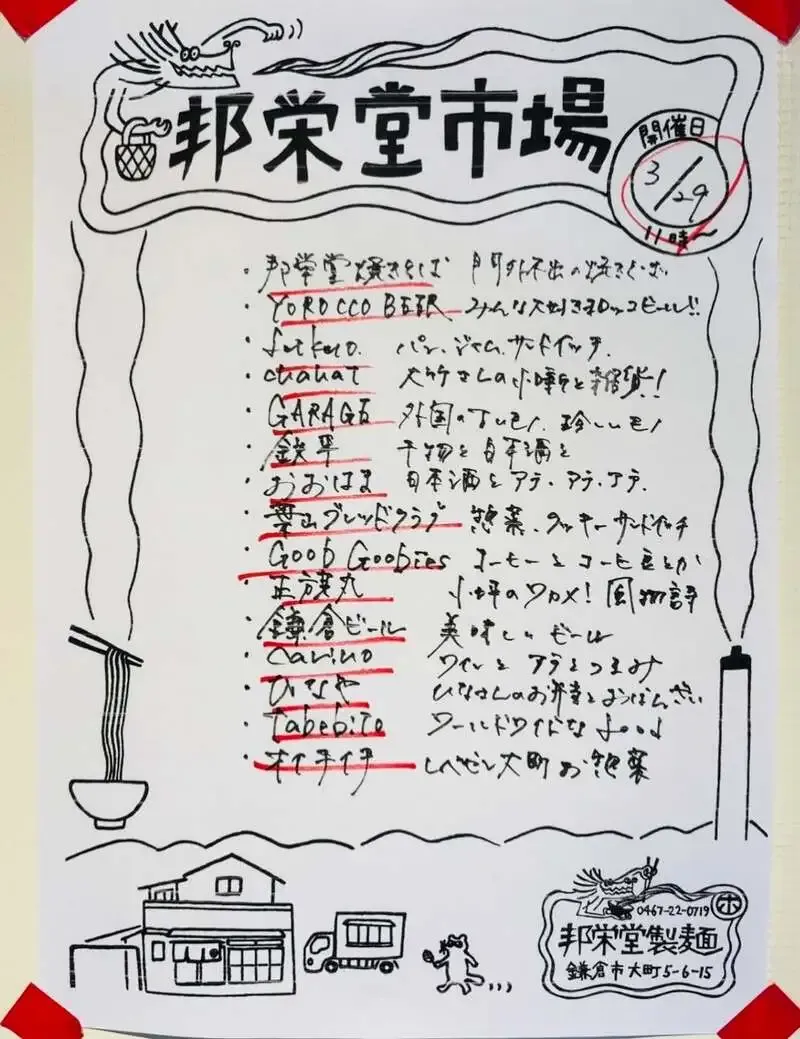 邦栄堂市場
開催日
3/29
11時〜
・邦栄堂焼きそば 門外不出の焼きそば
・YOROCCO BEER みんな大好きヨロッコビール!!
・ パン、ジャム、サンドイッチ
・chahat 大竹さんの小噺と雑貨!
・GARAGE 外国の古いモノ、珍しいモノ
・鉄平 干物と日本酒と
・おおはま 日本酒とアテ、アテ、アテ、
・葉山ブレッドクラブ 惣菜、クッキーサンドイッチ
・Goob Goobies コーヒーとコーヒー豆とか
・正方漠丸 小坪のワカメ!風物詩
・鎌倉ビール 美味しいビール
・carino ワインとアテとつまみ
・ひなや ひなさんのお弁当とおばんざい
・Tabebito ワールドワイドなfood
・オイチイチ レペゼン大町お惣菜
0467-22-0719
ホ
邦栄堂製麺
鎌倉市大町5-6-15